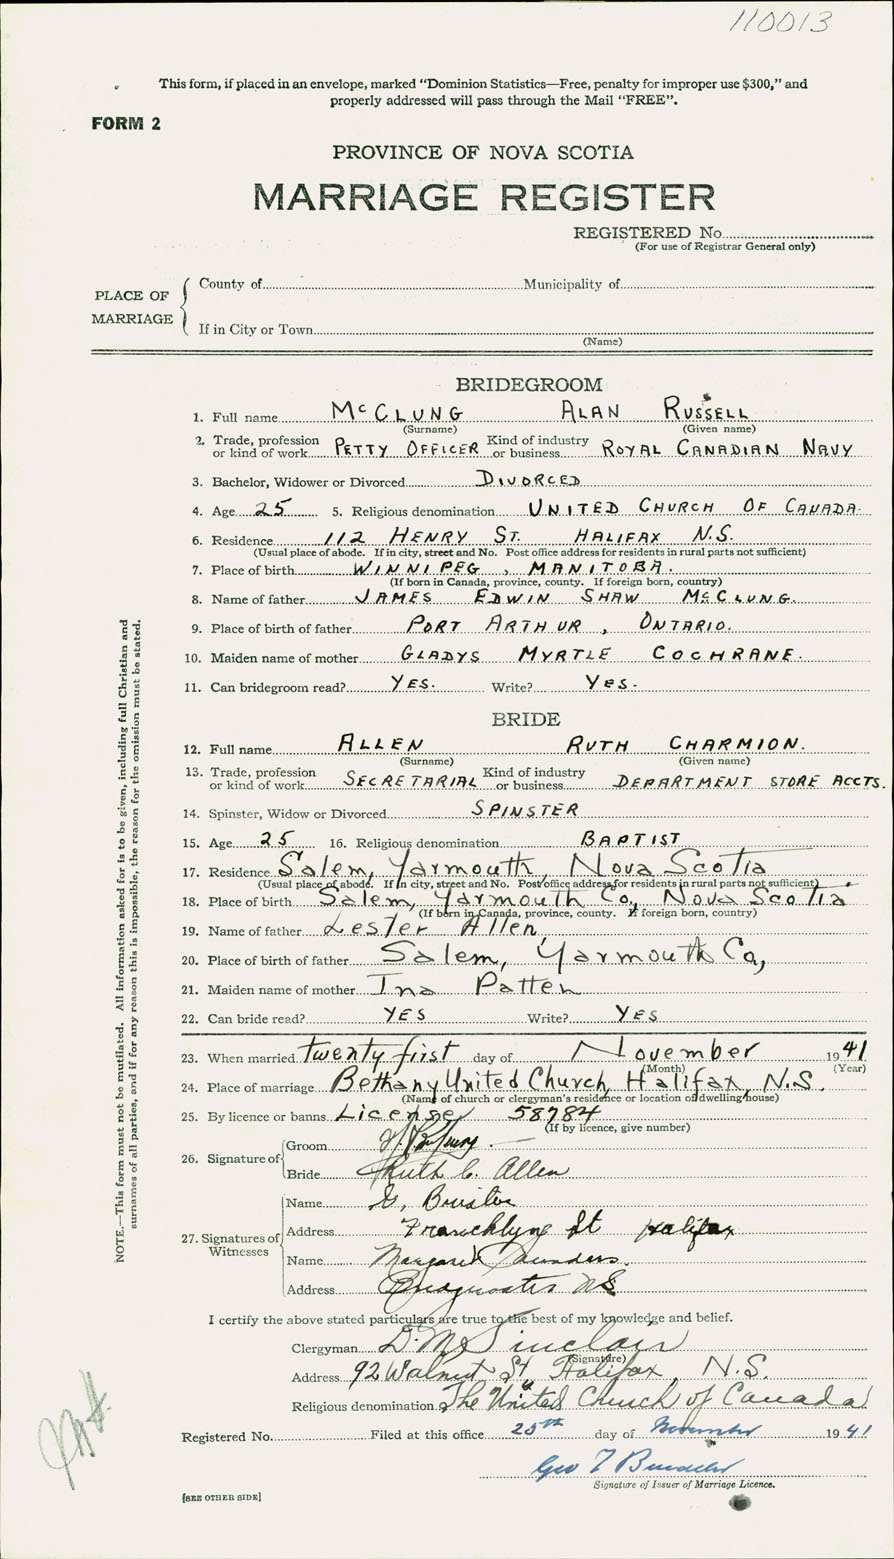 110013
This form, if placed in an envelope, marked “Dominion Statistics—Free, penalty for improper use $300,” and
properly addressed will pass through the Mail “FREE”.
FORM 2
PROVINCE OF NOVA SCOTIA
MARRIAGE REGISTER
REGISTERED No.
(For use of Registrar General only)
PLACE OF MARRIAGE
County of Municipality of
If in City or Town
(Name)
BRIDEGROOM
1. Full name McCLUNG ALAN RUSSELL
(Surname) (Given name)
2. Trade, profession or kind of work PETTY OFFICER Kind of industry or business ROYAL CANADIAN NAVY
3. Bachelor, Widower or Divorced DIVORCED
4. Age 25 5. Religious denomination UNITED CHURCH OF CANADA.
6. Residence 112 HENRY ST. HALIFAX N.S.
(Usual place of abode. If in city, street and No. Post office address for residents in rural parts not sufficient)
7. Place of birth WINNIPEG, MANITOBA.
(If born in Canada, province, county. If foreign born, country)
8. Name of father JAMES EDWIN SHAW McCLUNG.
9. Place of birth of father PORT ARTHUR, ONTARIO.
10. Maiden name of mother GLADYS MYRTLE COCHRANE.
11. Can bridegroom read? YES. Write? YES.
BRIDE
12. Full name ALLEN RUTH CHARMION.
(Surname) (Given name)
13. Trade, profession or kind of work SECRETARIAL Kind of industry or business DEPARTMENT STORE ACCTS.
14. Spinster, Widow or Divorced SPINSTER
15. Age 25 16. Religious denomination BAPTIST
17. Residence Salem, Yarmouth, Nova Scotia
(Usual place of abode. If in city, street and No. Post office address for residents in rural parts not sufficient)
18. Place of birth Salem, Yarmouth Co, Nova Scotia
(If born in Canada, province, county. If foreign born, country)
19. Name of father Lester Allen
20. Place of birth of father Salem, Yarmouth Co,
21. Maiden name of mother Ina Patten
22. Can bride read? YES Write? YES
23. When married twenty first day of November 1941
(Month) (Year)
24. Place of marriage Bethany United Church, Halifax, N.S.
(Name of church or clergyman's residence or location of dwelling house)
25. By licence or banns License 58784
(If by licence, give number)
26. Signature of
Groom
Bride Ruth C. Allen
27. Signatures of Witnesses
Name G,
Address Francklyn St Halifax
Name Margaret Saunders.
Address Bridgewater N.S.
I certify the above stated particulars are true to the best of my knowledge and belief.
Clergyman D. M. Sinclair
(Signature)
Address 92 Walnut St, Halifax N.S.
Religious denomination The United Church of Canada
Registered No. Filed at this office 25th day of November 1941
Geo T
Signature of Issuer of Marriage Licence.
[SEE OTHER SIDE]
NOTE.—This form must not be mutilated. All information asked for is to be given, including full Christian and
surnames of all parties, and if for any reason this is impossible, the reason for the omission must be stated.